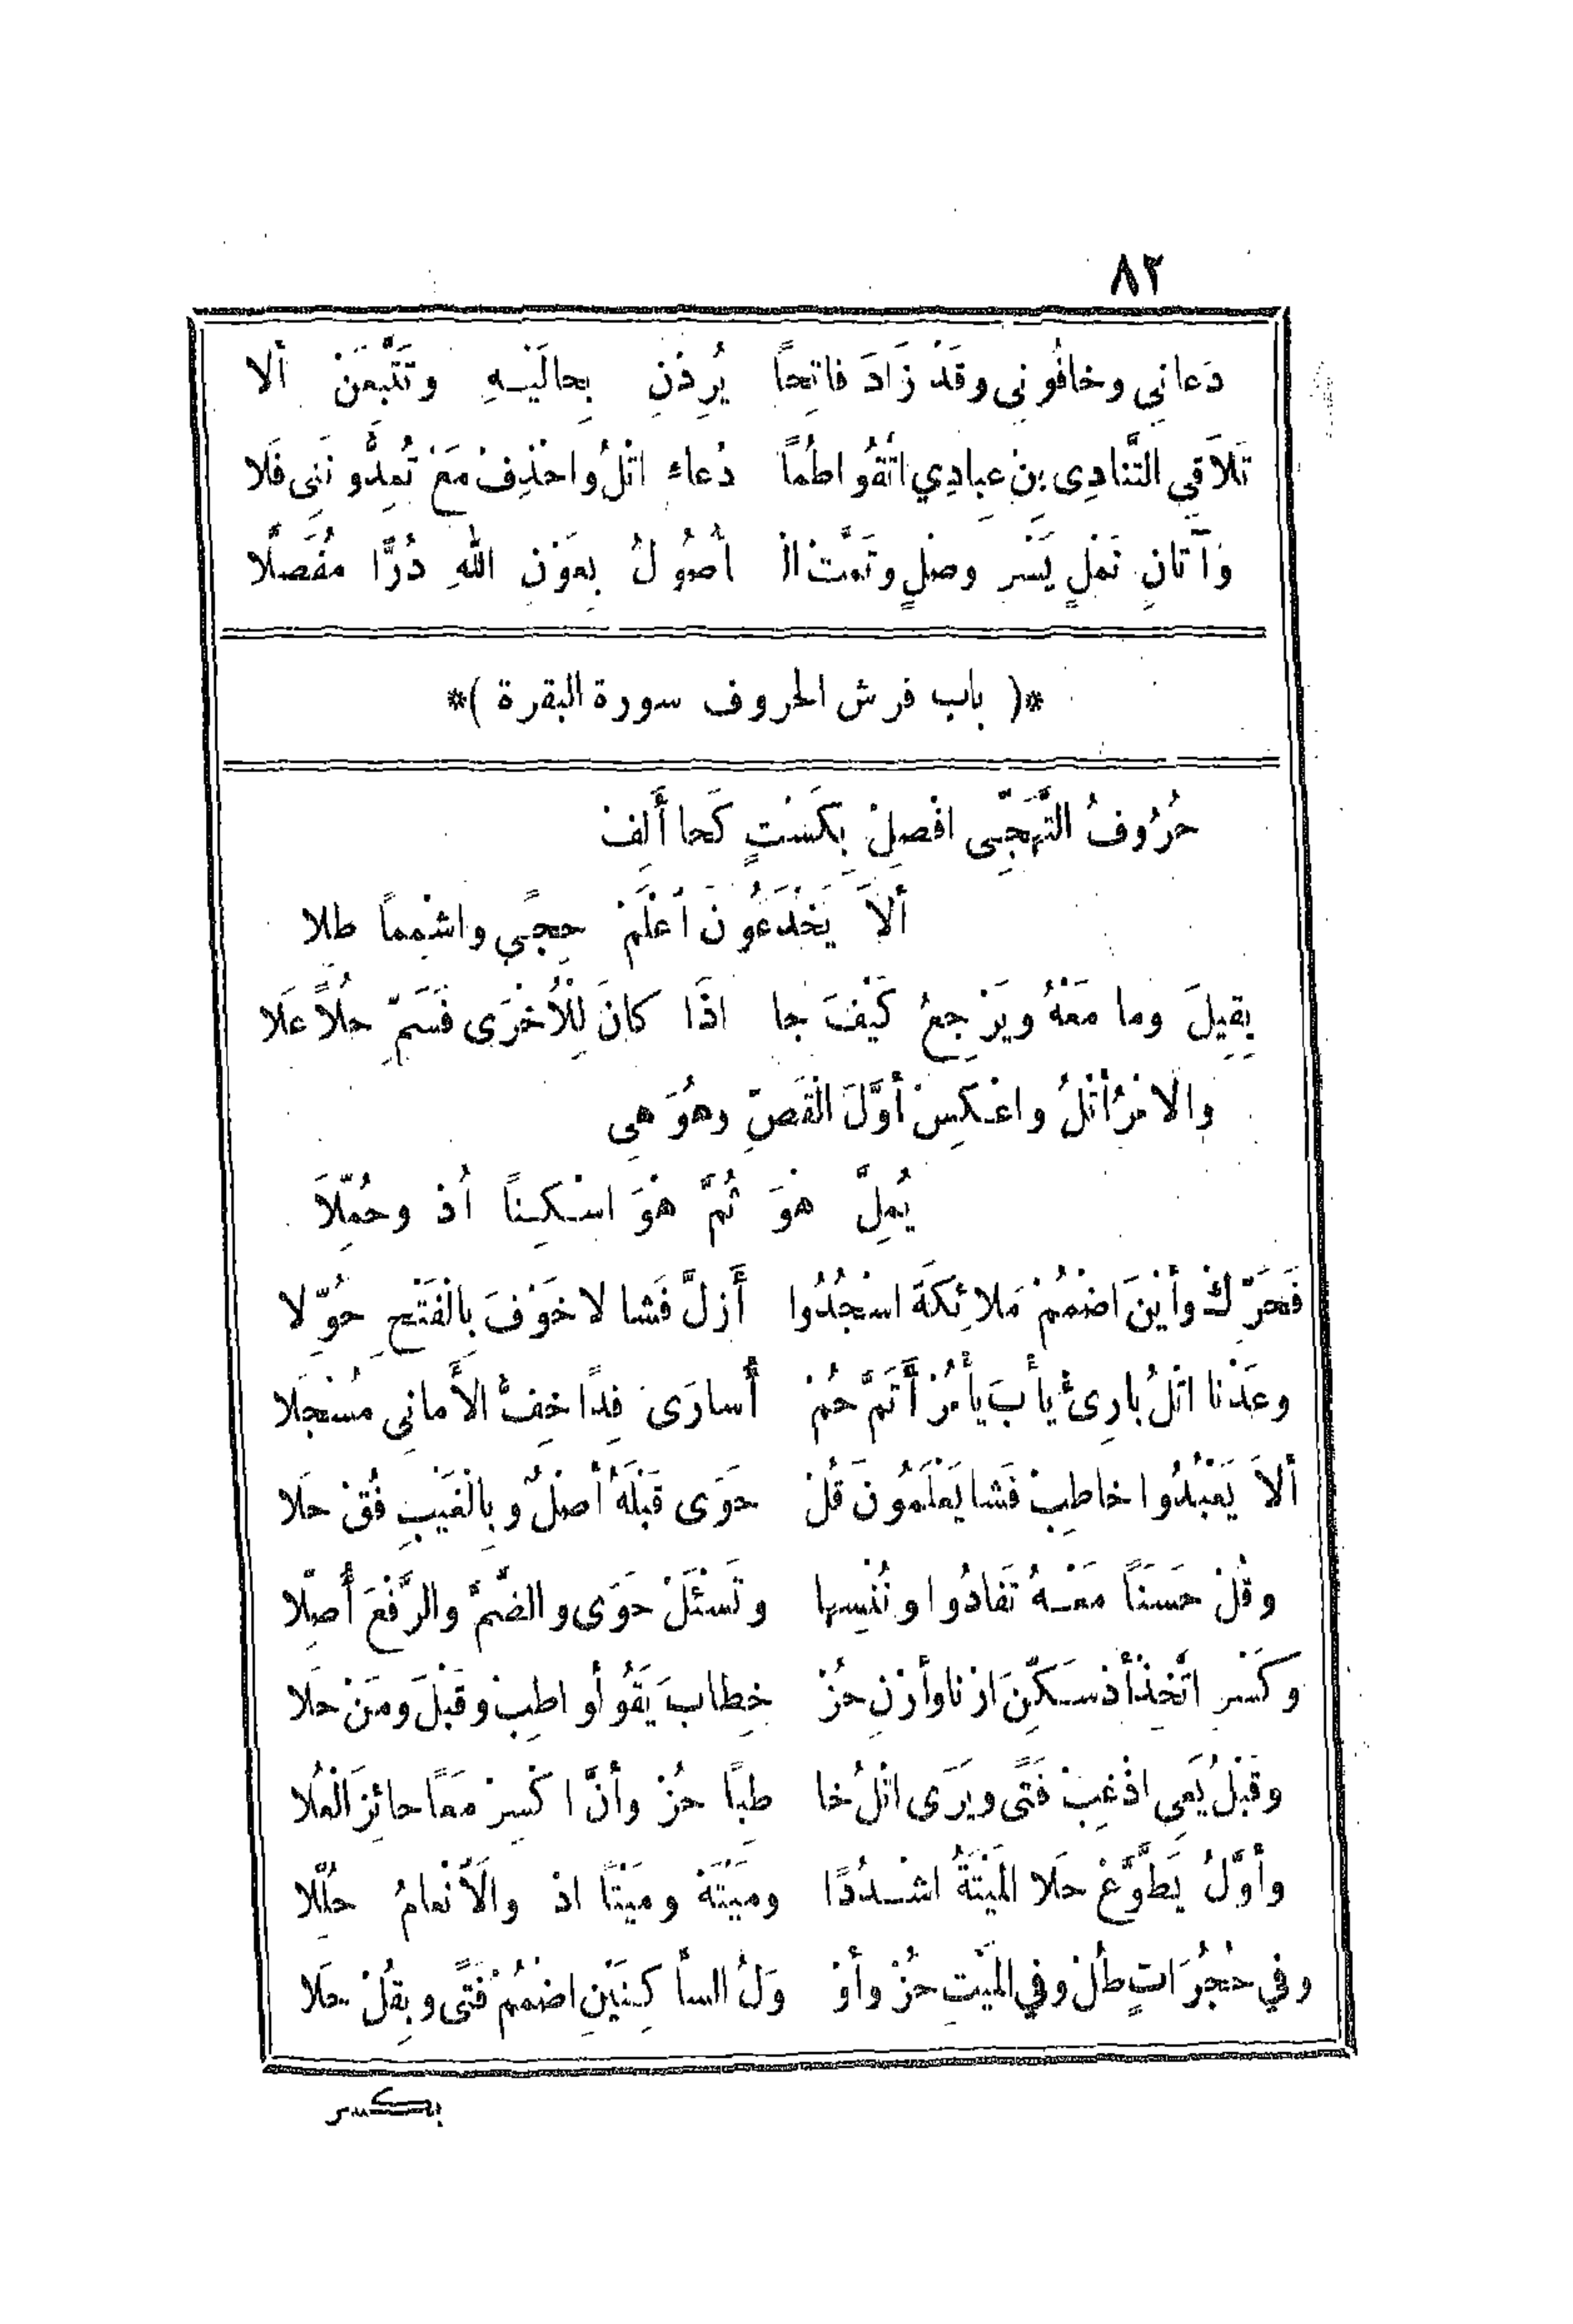 ٨٢
دَعانِي وخافُونِى وقَدْ زَادَ فاتِحًا يُرِدْنِ بِحالَيْهِ وتَتَّبِعَنْ ألا
تَلاَقِى التَّنادِى بِنْ عِبادِي اتَّقُوا طُمًا دُعاءِ اتْلُ واحْذِفْ مَعْ تُمِدُّونَنِى فَلا
وَآتانِ نَمْلٍ يَسْرِ وصْلٍ وتَمَّتْ الْ أصُولُ بِعَوْنِ اللهِ دُرًّا مُفَصَّلًا
*( باب فرش الحروف سورة البقرة )*
حُرُوفُ التَّهَجِّى افْصِلْ بِسَكْتٍ كَحا ألِفْ
ألاَ يَخْدَعُونَ اعْلَمْ حِجًى واشْمِماً طلا
بِقِيلَ وما مَعْهُ ويَرْجِعُ كَيْفَ جا اذَا كانَ لِلْأُخْرَى فَسَمِّ حلًا عَلَا
والامْرُ اتْلُ واعْكِسْ أوَّلَ القَصِّ وهْوَ هِى
يُمِلَّ هْوَ ثُمَّ هْوَ اسْكِنًا أُدْ وحُمِّلاَ
فَحَرِّكْ وأيْنَ اضْمُمْ مَلائِكَةَ اسْجُدُوا أزَلَّ فَشا لا خَوْفَ بِالفَتْحِ حُوِّلا
وعَدْنا اتْلُ بارِئْ يأبَ يأمُرْ أتَمَّ حُمْ أُسارَى فِدًا خِفُّ الأَمانِى مُسْجَلا
ألاَ يَعْبُدُوا خاطِبْ فَشا يَعْلَمُونَ قُلْ حَوَى قَبْلَهُ أصْلٌ وبِالغَيْبِ فُقْ حَلا
وقُلْ حَسَنًا مَعْهُ تَفادُوا ونُنْسِها وتَسْئَلْ حَوَى والضَّمُّ والرَّفْعُ أُصِّلا
وكَسْرِ اتَّخِذْ أُدْ سَكِّنَ ارْنا وأرْنِ حُزْ خِطابَ يَقُولُو اطِبْ وقَبْلَ ومَنْ حَلا
وقَبْلُ يَعِى اذْ غِبْ فَتًى ويَرَى اتْلُ خا طِبًا حُزْ وأنَّ اكْسِرْ مَعًا حائِزَ الْعُلا
وأوَّلُ يَطَّوَّعْ حَلا المَيْتَةُ اشْدُدًا ومَيْتَهْ ومَيْتًا اذْ والأَنْعامُ حُلِّلا
وفي حُجُرَاتٍ طُلْ وفي المَيْتِ حُزْ وأوْ وَلُ السا كِنَيْنِ اضْمُمْ فَتًى وبِقُلْ حَلا
بكسر